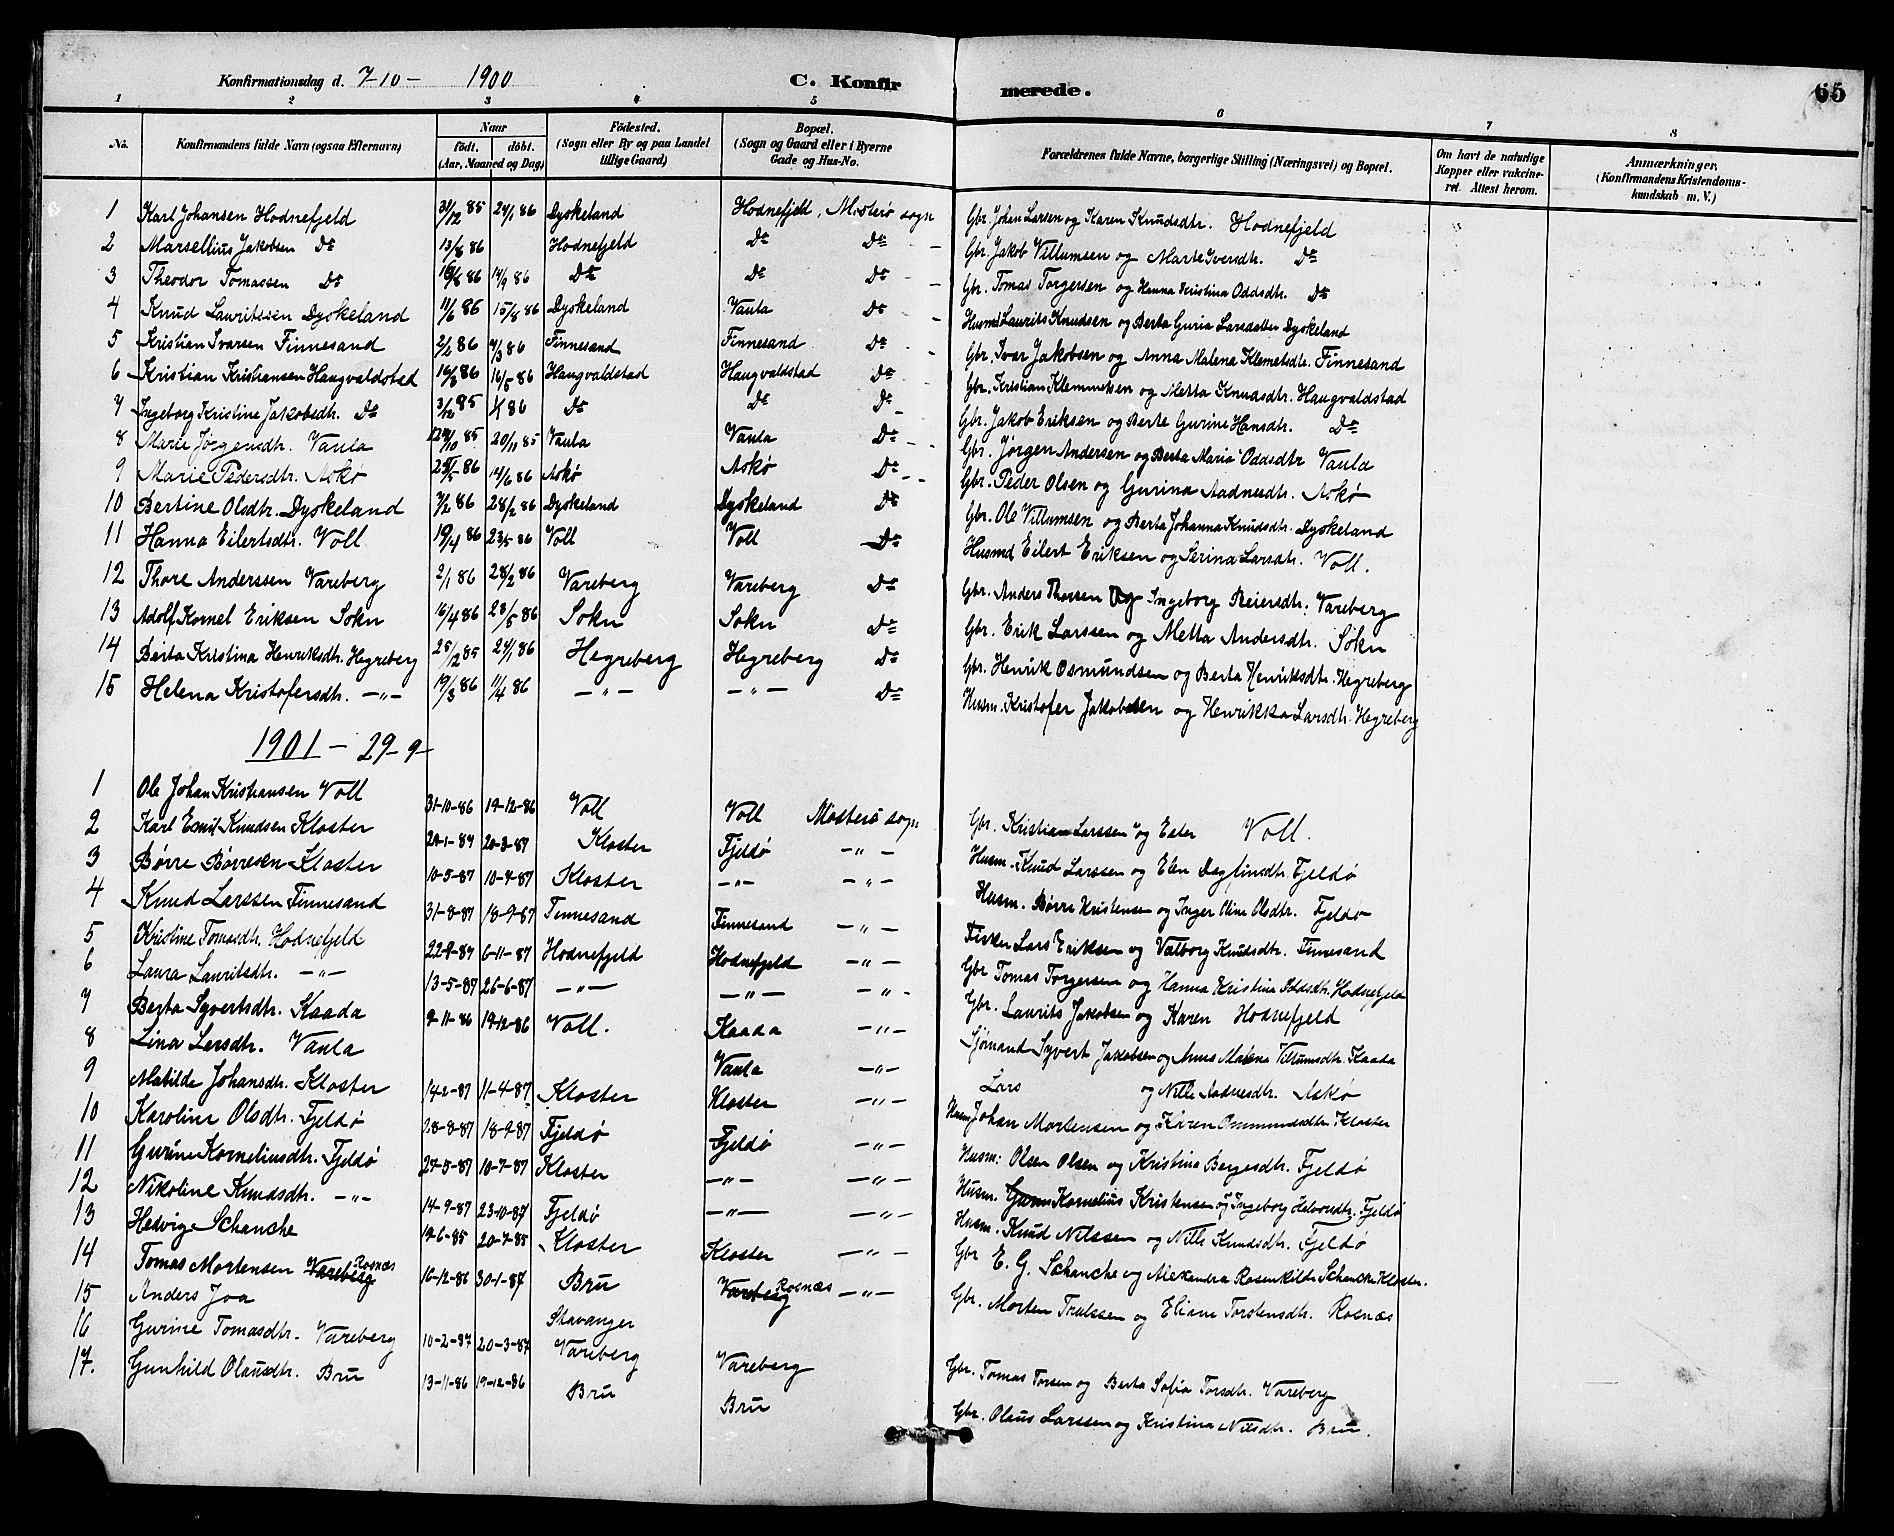 Konfirmationsdag d. 7-10- 1900 C. Konfirmerede. 65
1 2 3 4 5 6 7 8
No. Konfirmandens fulde Navn (ogsaa Efternavn) Naar födt. döbt. (Aar, Maaned og Dag) Födested. (Sogn eller By og paa Landet tillige Gaard) Bopæl. (Sogn og Gaard eller i Byerne Gade og Hus-No. Forældrenes fulde Navne, borgerlige Stilling (Næringsvei) og Bopæl. Om havt de naturlige Kopper eller vakcineret. Attest herom. Anmærkninger, (Konfirmandens Kristendomskundskab m. V.)
1 Karl Johansen Hodnefjeld 31/12 85 24/1 86 Dyskeland Hodnefjeld, Misterö sogn Gbr. Johan Larsen og Karen Knudsdtr. Hodnefjeld
2 Marsellius Jakobsen Do 13/8 86 Hodnefjeld Do Do Gbr. Jakob Villumsen og Marte Iversdtr. Do
3 Theodor Tomassen Do 86 14/9 86 Do Do Do Gbr. Tomas Torgersen og Hanna Kristina Oddsdtr. Do
4 Knud Lauritssen Dyskeland 11/6 86 15/8 86 Dyskeland Vaula Do Husmd Laurits Knudsen og Berta Guria Larsdatter Dyskeland
5 Kristian Ivarsen Finnesand 2/2 86 /3 86 Finnesand Finnesand Do Gbr. Ivar Jakobsen og Anna Malena Klemetsdtr. Finnesand
6 Kristian Kristiansen Haugvaldstad 16/3 86 16/5 86 Haugvaldstad Haugvaldstad Do Gbr. Kristian Klemmetsen og Metta Knudsdtr. Haugvaldstad
7 Ingeborg Kristine Jakobsdtr. Do 3/12 85 86 Do Do Do Gbr. Jakob Eriksen og Berte Gurine Hansdtr. Do
8 Marie Jørgensdtr. Vaula /10 85 20/11 85 Vaula Vaula Do Gbr. Jørgen Andersen og Berta Maria Oddsdtr Vaula
9 Marie Pedersdtr. Askø 25/5 86 14/6 86 Askø Askø Do Gbr. Peder Olsen og Gurina Aadnesdtr. Askø
10 Bertine Olsdtr. Dyskeland 7/2 86 28/2 86 Dyskeland Dyskeland Do Gbr. Ole Villumsen og Berta Johanna Knudsdtr. Dyskeland
11 Hanna Eilertsdtr. Voll 19/4 86 23/5 86 Voll Voll Do Husmd Eilert Eriksen og Serina Larsdtr. Voll.
12 Thore Anderssen Vareberg 2/1 86 28/2 86 Vareberg Vareberg Do Gbr. Anders Thorsen og Ingeborg Reiersdtr. Vareberg
13 Adolf Kornel Eriksen Sokn 16/4 86 23/5 86 Sokn Sokn Do Gbr. Erik Larssen og Metta Andersdtr. Sokn
14 Berta Kristina Henriksdtr. Hegreberg 25/12 85 24/1 86 Hegreberg Hegreberg Do Gbr. Henrik Osmundsen og Berta Henriksdtr. Hegreberg
15 Helena Kristofersdtr. —"— 19/3 86 11/4 86 —"— —"— Do Husm. Kristofer Jakobsen og Henrikka Larsdtr. Hegreberg
1901 - 29-9-
1 Ole Johan Kristiansen Voll 31-10-86 19-12-86 Voll Voll Mosterö sogn Gbr. Kristian Larssen og Ester Voll.
2 Karl Emil Knudsen Kloster 24-1-87 20-3-87 Kloster Fjeldø —"— Husm. Knud Larssen og Elen Dagfinsdtr. Fjeldø
3 Børre Børresen Kloster 10-5-87 10-7-87 Kloster —"— —"— Husm. Børre Kristensen og Inger Oline Olsdtr. Fjeldø
4 Knud Larssen Finnesand 31-8-87 18-9-87 Finnesand Finnesand —"— Fisker Lars Eriksen og Valborg Knudsdtr. Finnesand
5 Kristine Tomasdtr. Hodnefjeld 22-9-87 6-11-87 Hodnefjeld Hodnefjeld —"— Gbr Tomas Torgersen og Hanna Kristina Oddsdtr. Hodnefjeld
6 Laura Lauritsdtr. —"— 13-5-87 26-6-87 —"— —"— —"— Gbr. Laurits Jakobsen og Karen Hodnefjeld
7 Berta Syvertsdtr. Kaada 9-11-86 19-12-86 Voll. Kaada —"— Sjømand Syvert Jakobsen og Anne Malena Villumsdtr. Kaada
8 Lina Larsdtr. Vaula Vaula —"— Lars og Nille Aadnesdtr. Askø
9 Matilda Johansdtr. Kloster 14-2-87 11-4-87 Kloster Kloster —"— Husm Johan Mortensen og Karen Ommundsdtr. Kloster
10 Karoline Olsdtr. Fjeldø 28-8-87 18-9-87 Fjeldø Fjeldø —"— Husm: Olsen Olsen og Kristina Bergesdtr. Fjeldø
11 Gurine Korneliusdtr. Fjeldø 27-5-87 10-7-87 Kloster —"— —"— Husm. Kornelius Kristensen og Ingeborg Halvorsdtr. Fjeldø
12 Nikoline Knudsdtr. —"— 14-9-87 23-10-87 Fjeldø —"— —"— Husm. Knud Nilssen og Nille Knudsdtr. Fjeldø
13 Hedvige Schanche 19-6-85 20-7-85 Kloster Kloster —"— Gbr E. G. Schanche og Alexandra Rosenkilde Schanche Kloster.
14 Tomas Mortensen Vareberg Rosnæs 16-12-86 30-1-87 Bru Vareberg Rosnæs —"— Gbr. Morten Trulssen og Eliane Torstensdtr. Rosnæs
15 Anders Joa Stavanger
16 Gurine Tomasdtr. Vareberg 10-2-87 20-3-87 Vareberg Vareberg Gbr. Tomas Torsen og Berta Sofia Torsdtr. Vareberg
17. Gunhild Olausdtr. Bru 13-11-86 19-12-86 Bru Bru Gbr. Olaus Larssen og Kristina Nilsdtr. Bru.